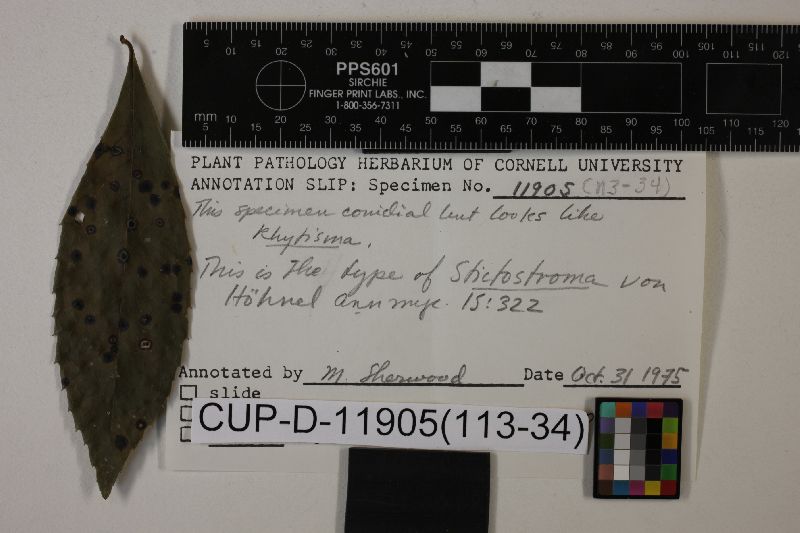 PPS601
SIRCHIE
FINGER PRINT LABS., INC.
1-800-356-7311
mm
5 10 15 20 25 30 35 40 45 50 55 60 65 70 75 80 85 90 95 100 105 110 115 120
PLANT PATHOLOGY HERBARIUM OF CORNELL UNIVERSITY
ANNOTATION SLIP: Specimen No. 11905 (113-34)
This specimen conidial but looks like
Rhytisma.
This is the type of Stictostroma von
Höhnel Ann myc. 15:322
Annotated by M. Sherwood Date Oct. 31 1975
slide
CUP-D-11905(113-34)